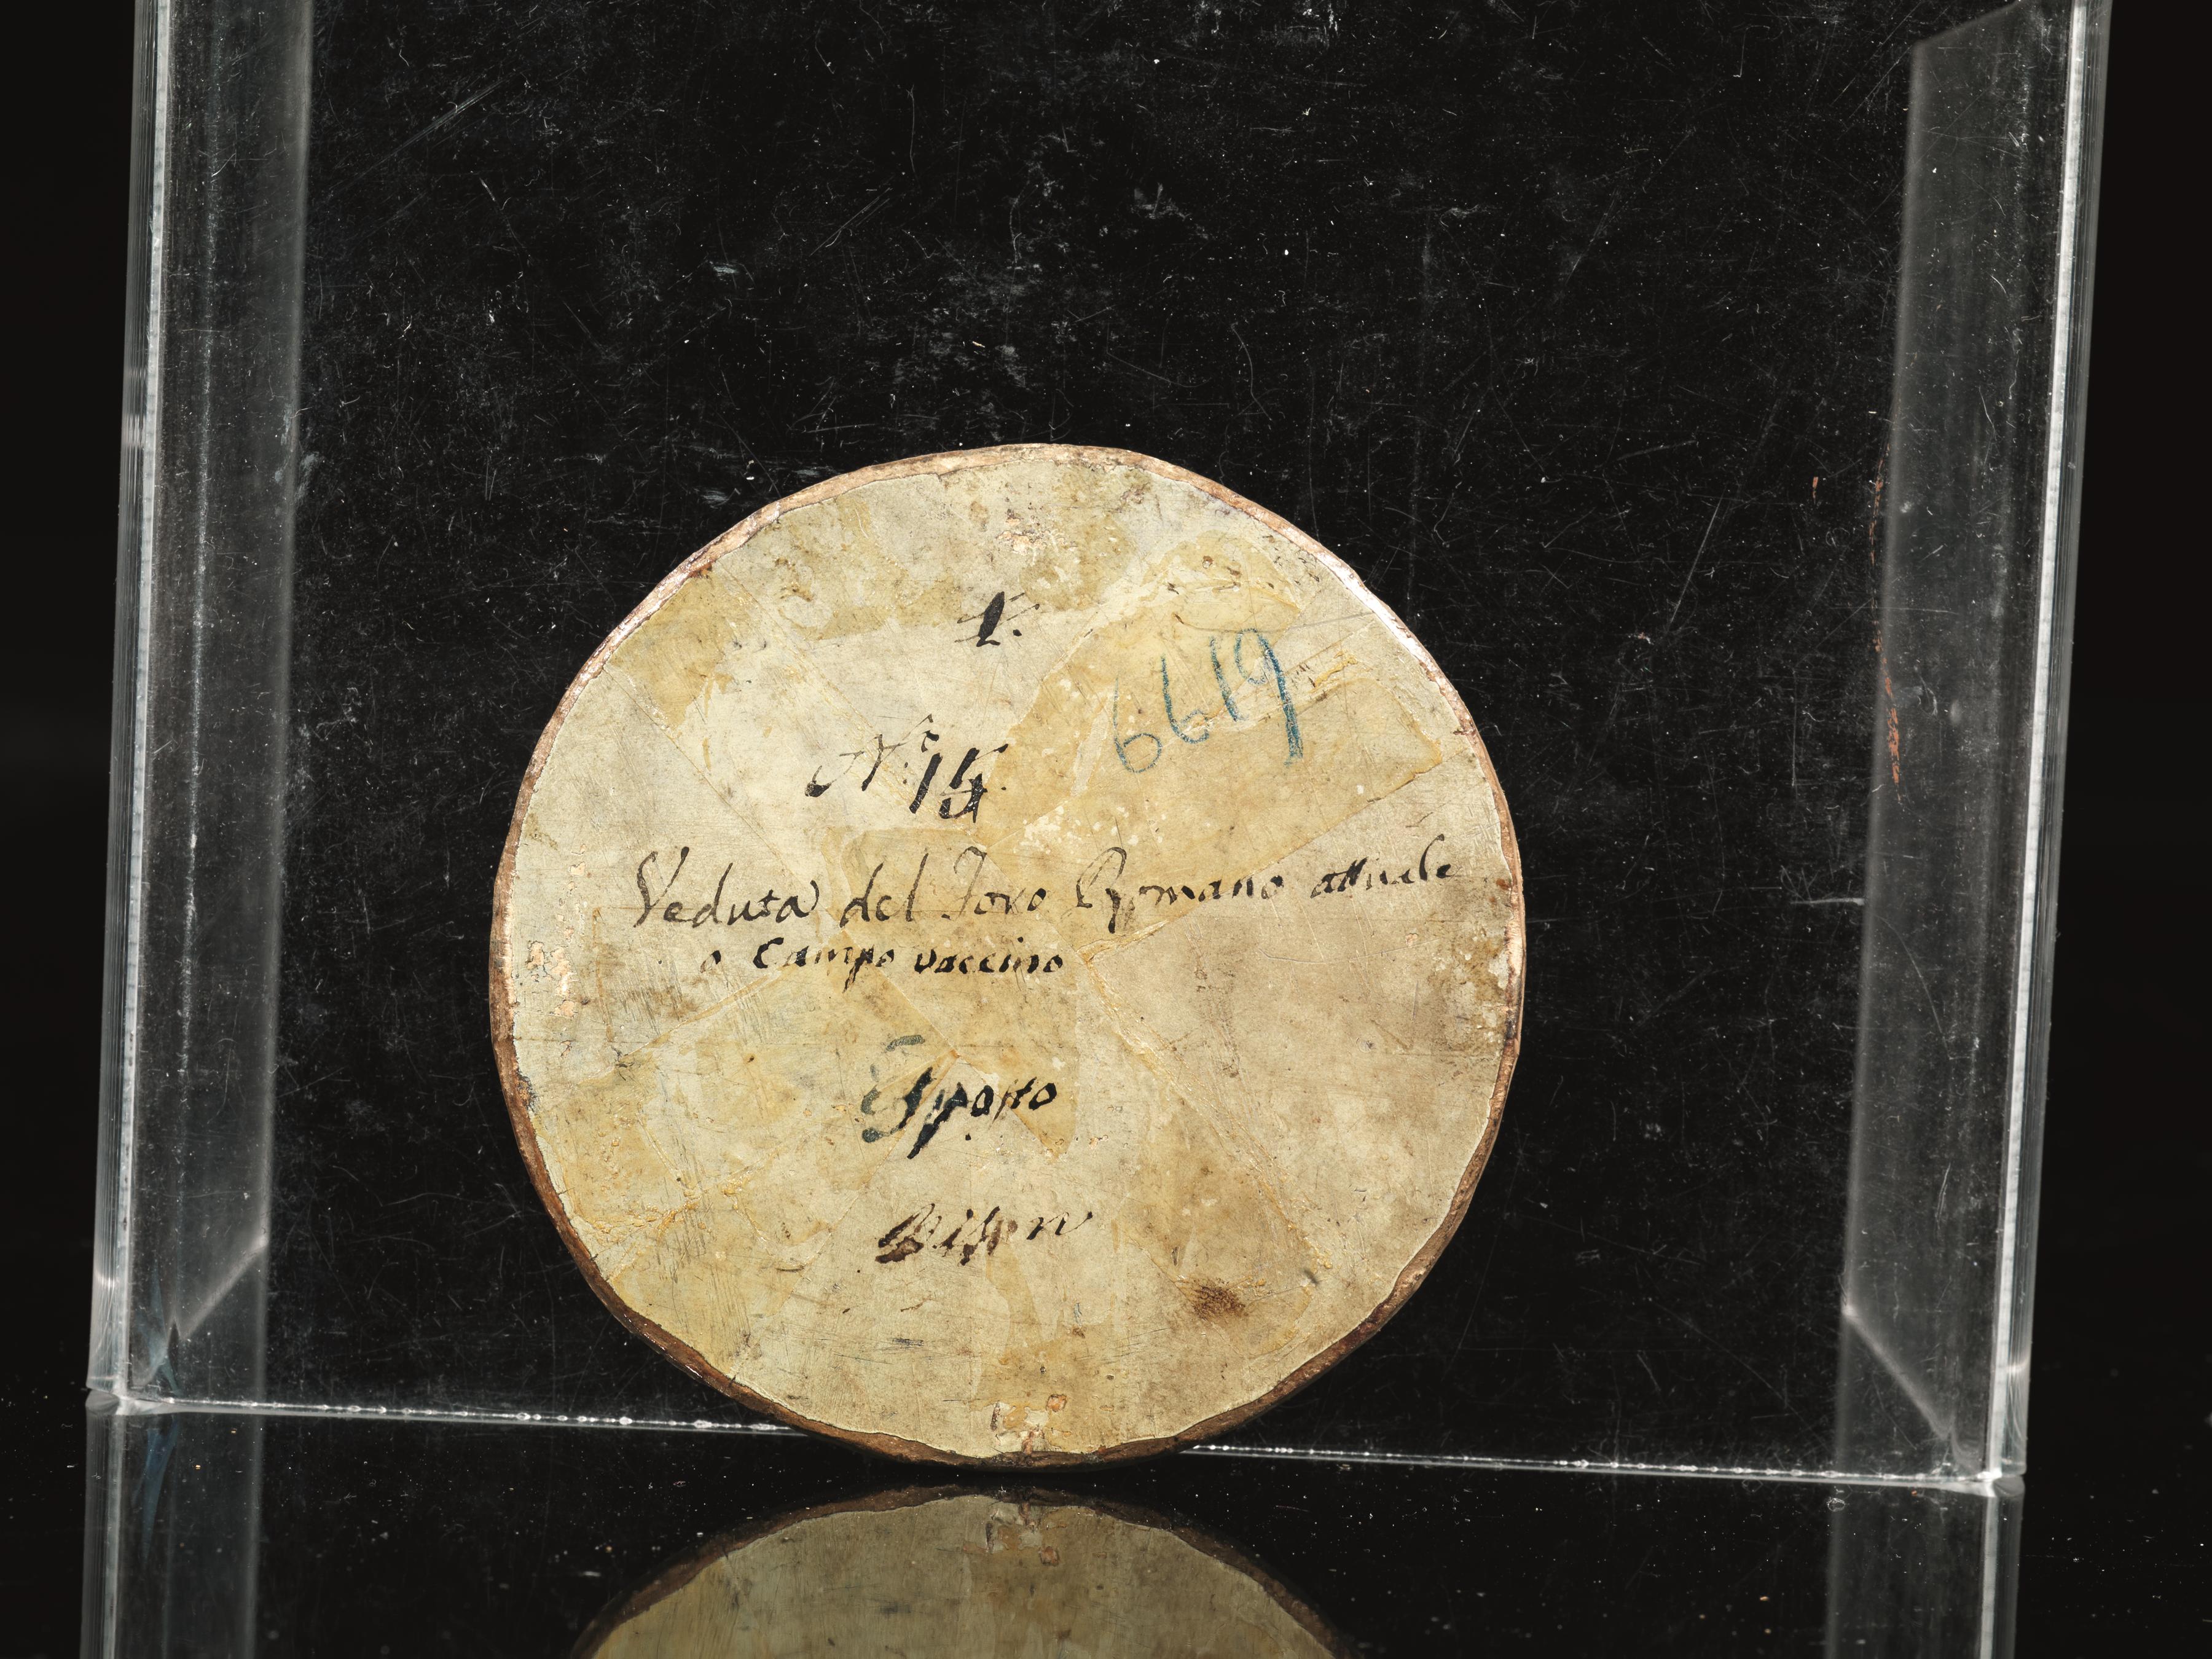 1.
6619
N.º 15.
Veduta del Foro Romano attuale
o Campo vaccino
Esposto
Bison